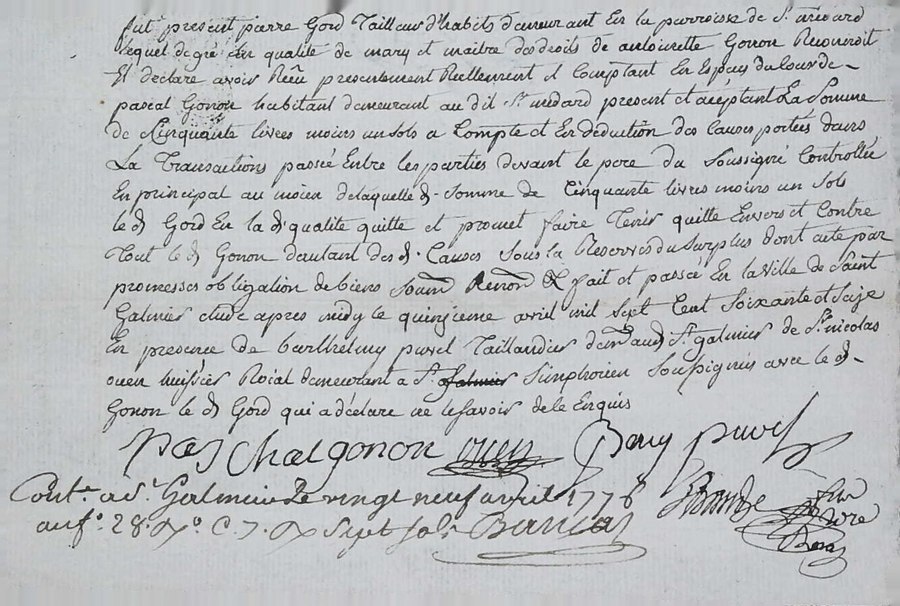 fut present pierre Gord Tailleur d'habits demeurant En la parroisse de St. medard
lequel de gré En qualité de mary et maitre des droits de antoinette Gonon Reconnoit
Et déclare avoir Reçu presentement Reellement et Comptant En Espèces du Cours de
pascal Gonon habitant demeurant au dit St. medard present et acceptant La Somme
de Cinquante livres moins un sols a Compte et En déduction des Causes portées dans
La Transactions passée Entre les parties devant le pere du Soussigné Controllée
En principal au moien de laquelle d. Somme de Cinquante livres moins un Sols
le d. Gord En la d. qualité quitte et promet faire Tenir quitte Envers et Contre
Tout le d. Gonon d'autant des d. Causes Sous la Reserves du Surplus dont acte par
promesses obligation de biens Soum Renon & fait et passée En la ville de Saint
Galmier Etude apres midy le quinzieme avril mil Sept Cent Soixante et Seize
En presence de barthelmy puvel Taillandier dem aud St. galmier de Sr. nicolas
ouen huissier Roial demeurant a St. Simphorien Soussignés avec le d.
Gonon le d. Gord qui a déclaré ne le Savoir de le Enquis
Paschal gonon ouen Bmy puvel
Cont. a St. Galmier Le vingt neuf avril 1776
au fo. 28. Vo. C. 7. Sept Sols